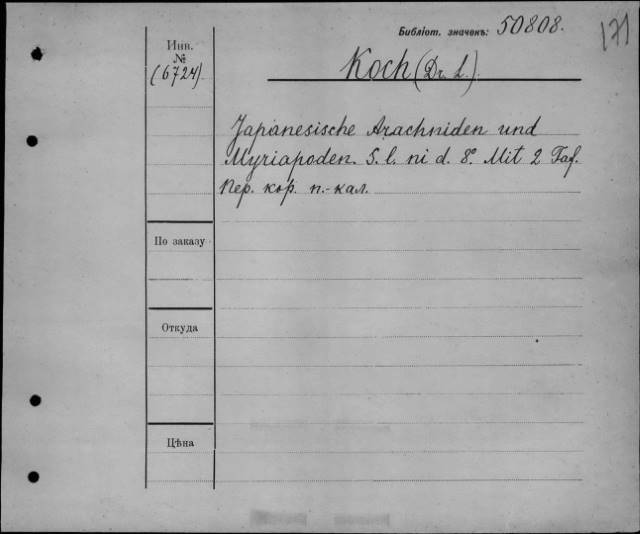 Библіот. значекъ: 50808.
171
Инв.
№
(6724)
Koch (Dr. L.)
Japanesische Arachniden und
Myriapoden. S. l. ni d. 8° Mit 2 Taf.
Пер. кор. п.-кал.
По заказу
Откуда
Цѣна